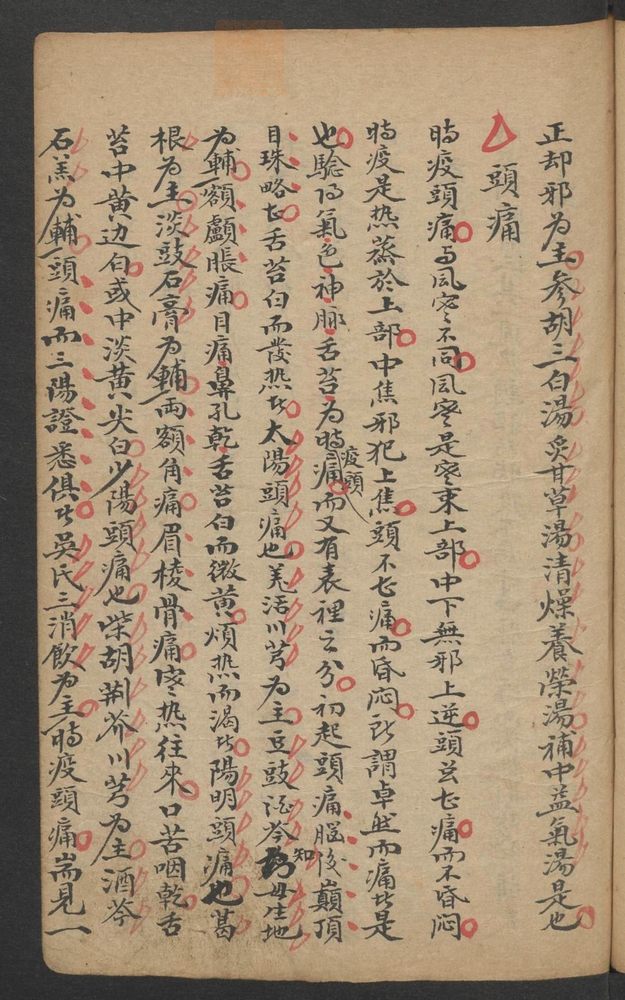 正却邪为主参胡三白湯炙甘草湯清燥養榮湯補中益氣湯是也
頭痛
時疫頭痛与风寒不同风寒是寒束上部中下無邪上逆頭兹㐂痛而不昏闷
時疫是热蒸於上部中焦邪犯上焦頭不㐂痛而昏闷所謂卓然而痛此是
也驗得氣色神脉舌苔为時疫頭痛而又有表裡之分初起頭痛腦後巔頂
目珠略㐂舌苔白而發热者太陽頭痛也羌活川芎为主豆豉酒芩知母生地
为輔額顱脹痛目痛鼻孔乾舌苔白而微黄煩热而渴者陽明頭痛也葛
根为主淡豉石膏为輔兩額角痛眉棱骨痛寒热往來口苦咽乾舌
苔中黄边白或中淡黄尖白少陽頭痛也柴胡荆芥川芎为主酒芩
石羔为輔頭痛而三陽證悉俱者吳氏三消飲为主時疫頭痛耑見一